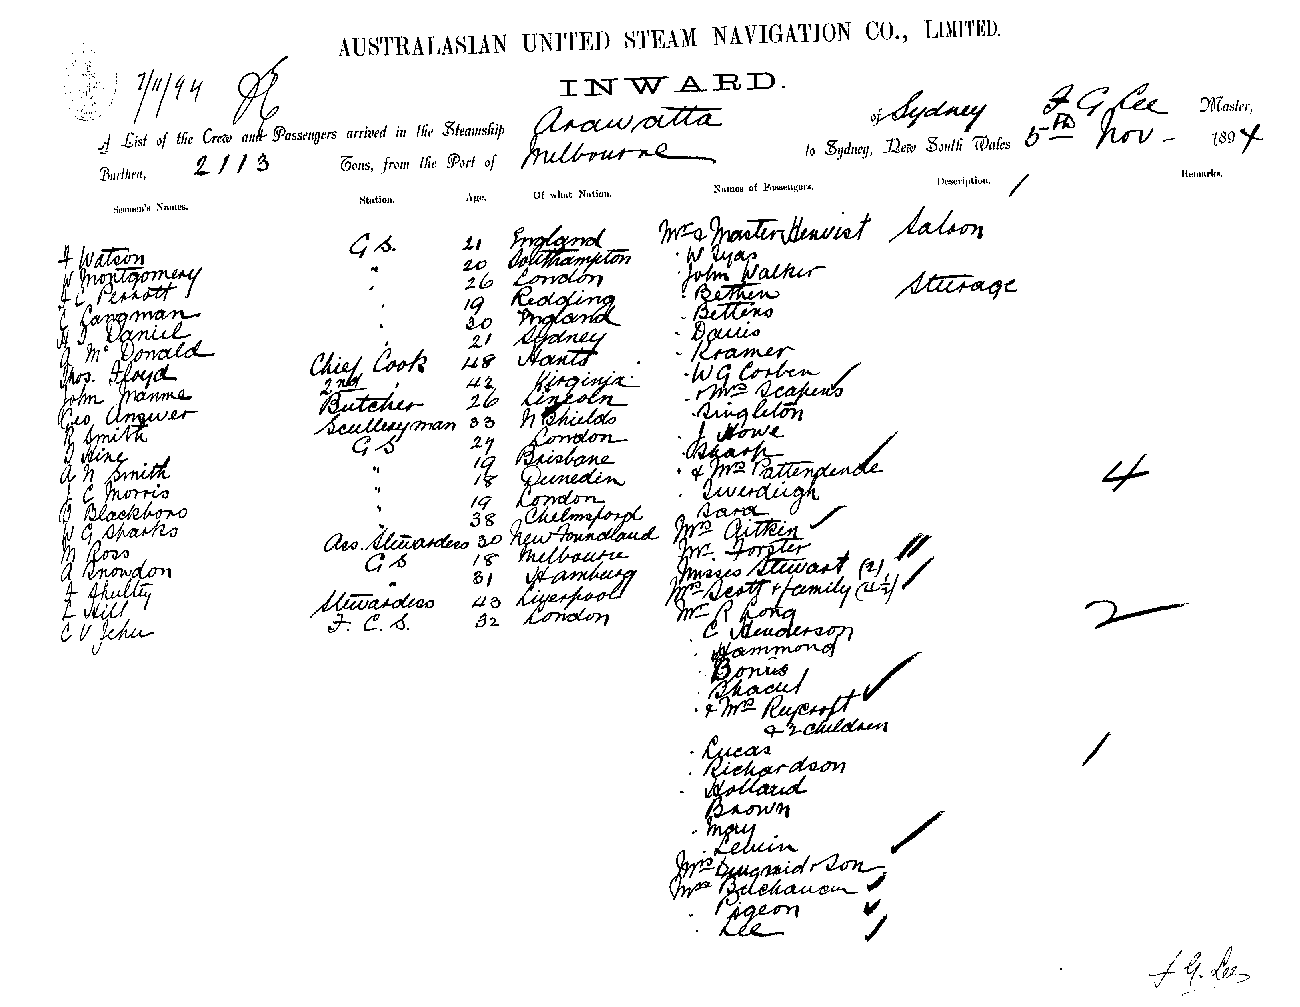 AUSTRALASIAN UNITED STEAM NAVIGATION CO., LIMITED.
7/11/94
INWARD.
A List of the Crew and Passengers arrived in the Steamship Arawatta of Sydney F G Lee Master,
Burthen, 2113 Tons, from the Port of Melbourne to Sydney, New South Wales 5th Nov - 1894
Seamen's Names. Station. Age. Of what Nation. Names of Passengers. Description. Remarks.
Watson G S. 21 England
W Montgomery " 20 Southampton
Perrott " 26 London
Langman 19 Redding
Daniel 20 England
McDonald 21 Sydney
Thos. Floyd Chief Cook 48 Hants
John 2nd " 42 Virginia
Geo Butcher 26 Lincoln
R Smith Scullery man 33 N Shields
Hine G S 27 London
A N Smith " 19 Brisbane
C Morris " 18 Dunedin
Blackboro " 19 London
W G Sparks 38 Chelmsford
M Ross Ass. Stewardess 30 New Foundland
A Snowdon G S 18 Melbourne
" 31 Hamburg
Hill Stewardess 43 Liverpool
C V F. C. S. 32 London
Mrs & Master Saloon
W Tyas
John Walker
Bethen Steerage
Bettens
Davis
Kramer
W G Corben
Mrs Scapens
Singleton
J Howe
Sharp
& Mrs Pattendende
4
Sara
Mrs Aitken
Mr. Forster
Misses Stewart (2)
Mrs Scott & family (4½)
Mr R Long
2
C Henderson
Hammond
Bonus
& Mrs Ruycroft
& 2 children
Lucas
Richardson
Holland
Brown
May
Mrs & Son
Mrs Buchanan
Pigeon
Lee
F G. Lee